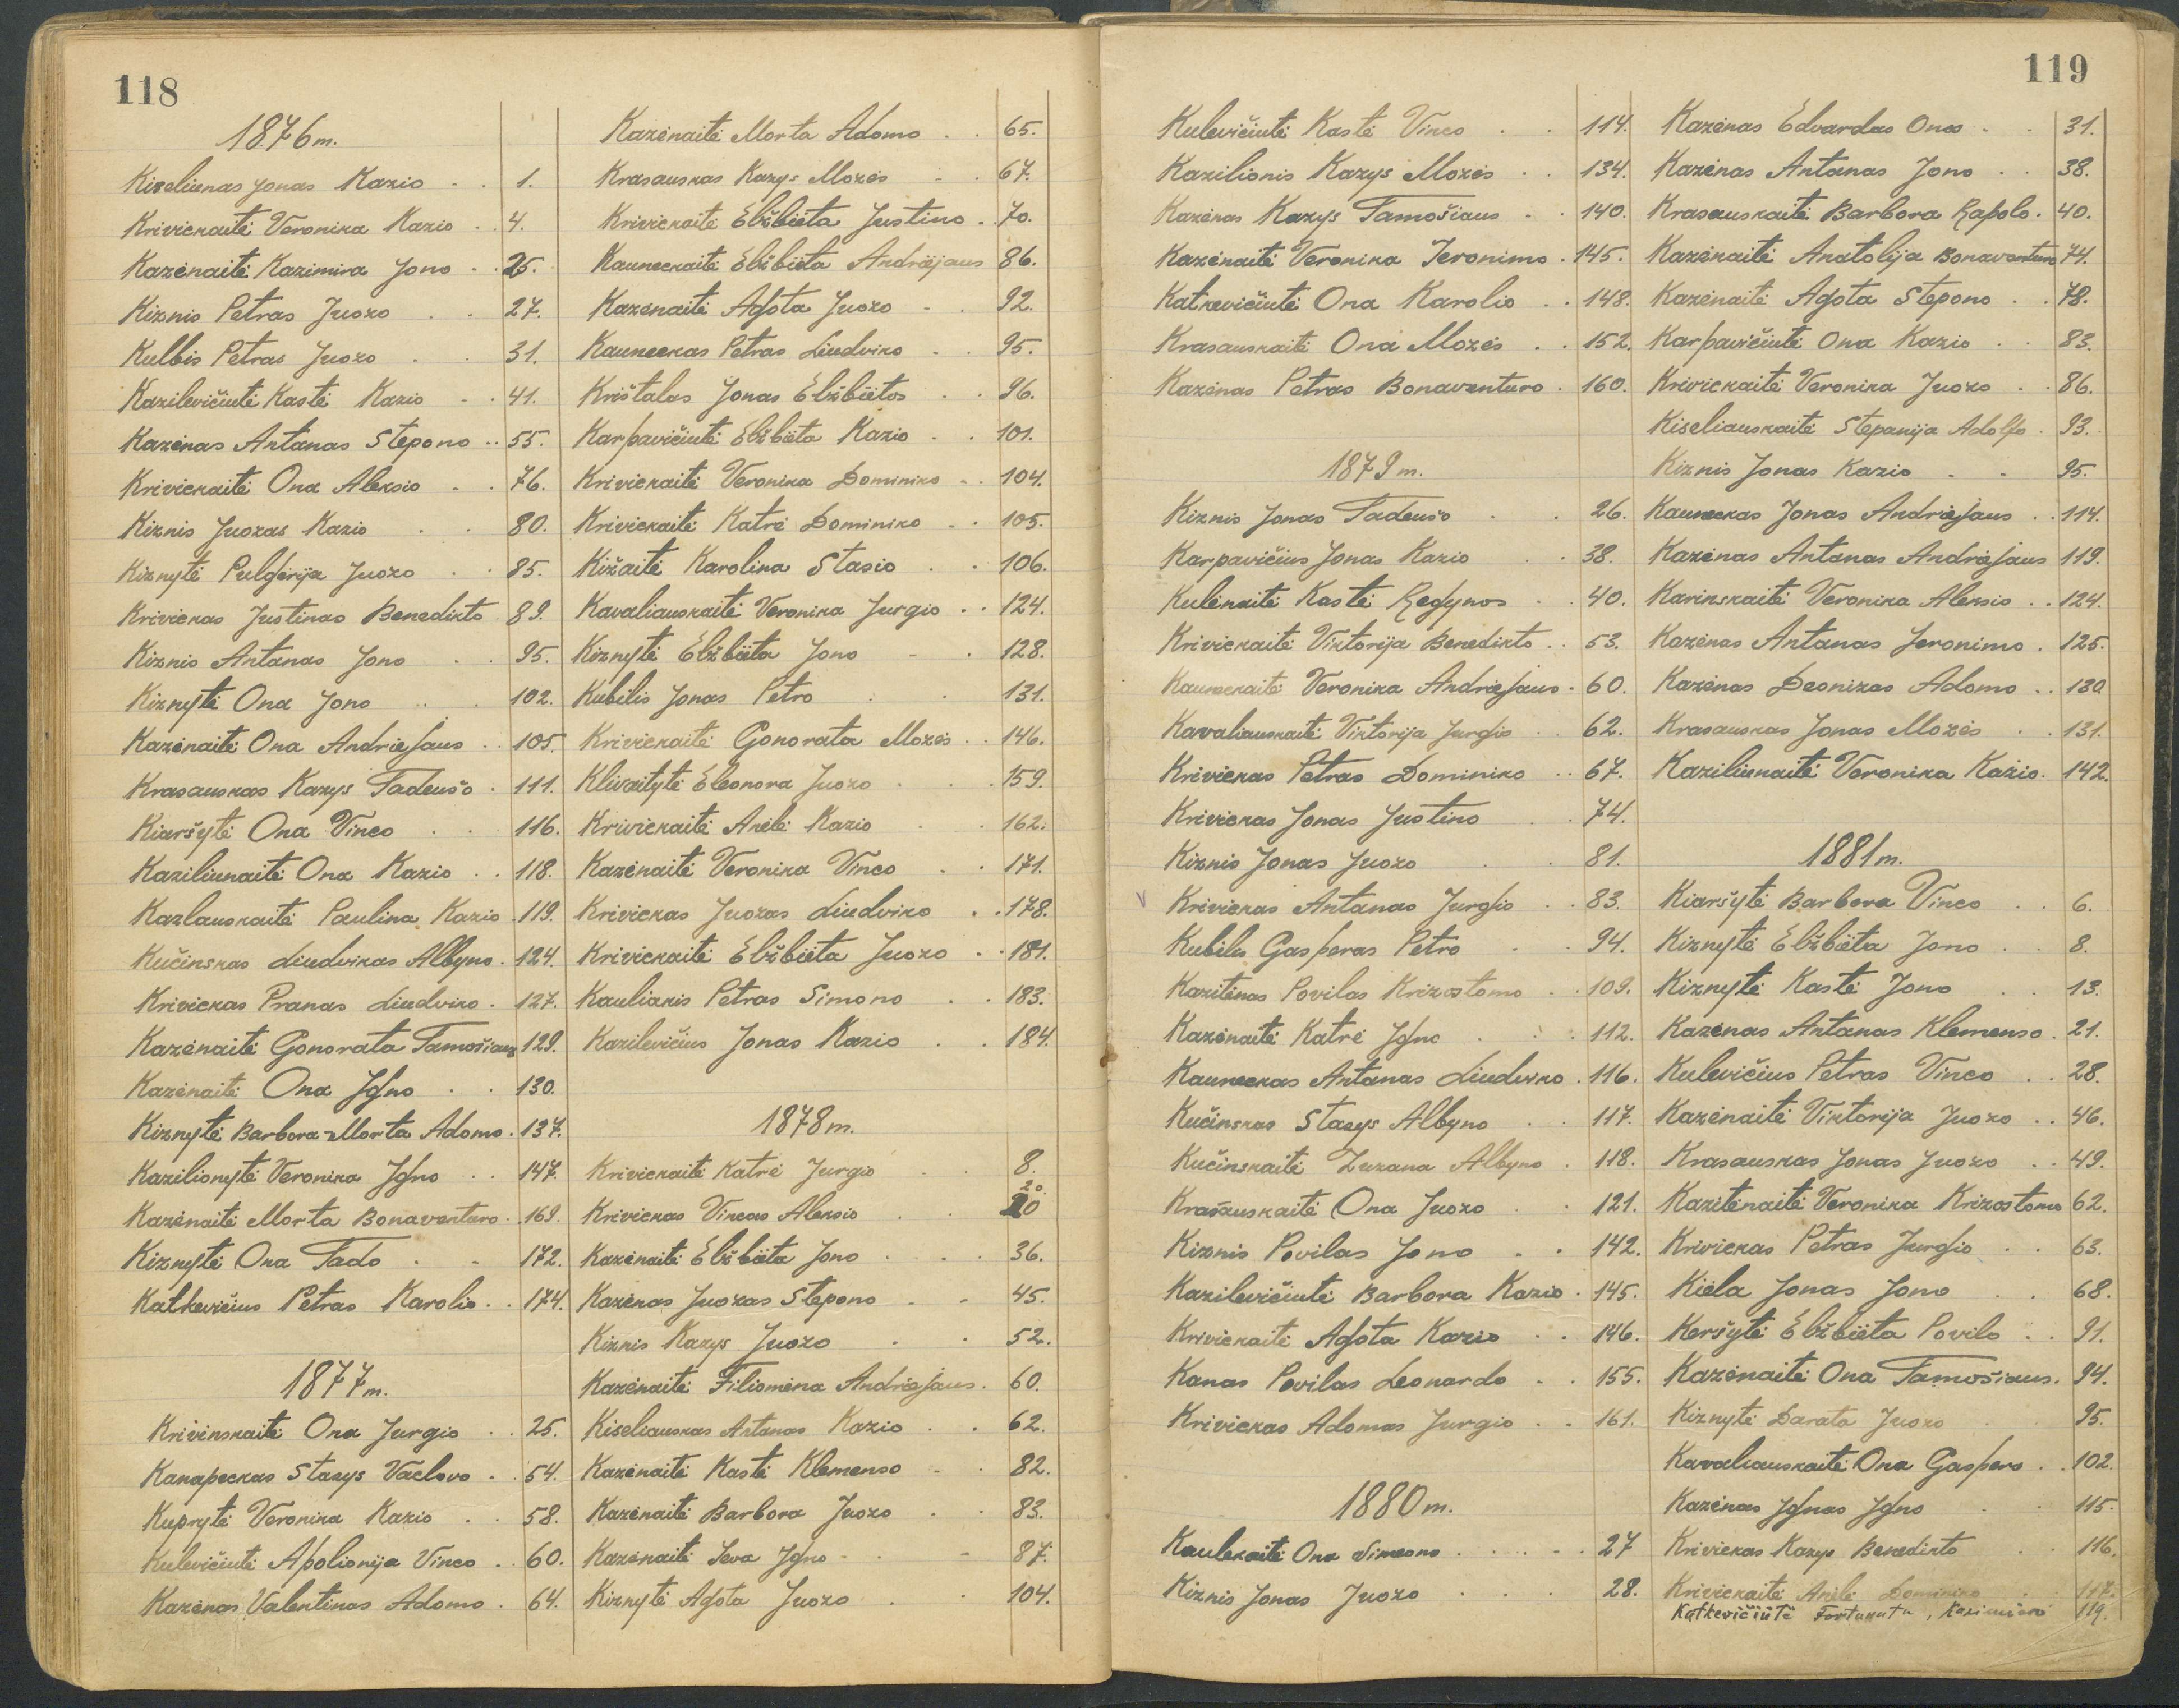 118
1876 m.
Kiseliunas Jonas Kazio 1.
Krivickaitė Veronika Kazio 4.
Kazėnaitė Kazimira Jono 25.
Kiznis Petras Juozo 27.
Kulbis Petras Juozo 31.
Kazilevičiutė Kastė Kazio 41.
Kazėnas Antanas Stepono 55.
Krivickaitė Ona Aleksio 76.
Kiznis Juozas Kazio 80.
Kiznytė Pulgerija Juozo 85.
Krivickas Justinas Benedikto 89.
Kiznis Antanas Jono 95.
Kiznytė Ona Jono 102.
Kazėnaitė Ona Andriejaus 105.
Krasauskas Kazys Tadeušo 111.
Kiaršytė Ona Vinco 116.
Kaziliunaitė Ona Kazio 118.
Kazlauskaitė Paulina Kazio 119.
Kučinskas Liudvikas Albyno 124.
Krivickas Pranas Liudviko 127.
Kazėnaitė Gonorata Tamošiaus 129.
Kazėnaitė Ona Igno 130.
Kiznytė Barbora-Morta Adomo 137.
Kazilionytė Veronika Igno 147.
Kazėnaitė Morta Bonaventuro 169.
Kiznytė Ona Tado 172.
Katkevičius Petras Karolio 174.
1877 m.
Krivinskaitė Ona Jurgio 25.
Kanapeckas Stasys Vaclovo 54.
Kuprytė Veronika Kazio 58.
Kulevičiutė Apolionija Vinco 60.
Kazėnas Valentinas Adomo 64.
Kazėnaitė Morta Adomo 65.
Krasauskas Kazys Mozės 67.
Krivickaitė Elžbieta Justino 70.
Kauneckaitė Elžbieta Andriejaus 86.
Kazėnaitė Agota Juozo 92.
Kauneckas Petras Liudviko 95.
Krištalas Jonas Elžbietos 96.
Karpavičiutė Elžbieta Kazio 101.
Krivickaitė Veronika Dominiko 104.
Krivickaitė Katrė Dominiko 105.
Kižaitė Karolina Stasio 106.
Kavaliauskaitė Veronika Jurgio 124.
Kiznytė Elžbieta Jono 128.
Kubilis Jonas Petro 131.
Krivickaitė Gonorata Mozės 146.
Klivaitytė Eleonora Juozo 159.
Krivickaitė Anelė Kazio 162.
Kazėnaitė Veronika Vinco 171.
Krivickas Juozas Liudviko 178.
Krivickaitė Elžbieta Juozo 181.
Kauliakis Petras Simono 183.
Kazilevičius Jonas Kazio 184.
1878 m.
Krivickaitė Katrė Jurgio 8.
Krivickas Vincas Aleksio 20
Kazėnaitė Elžbieta Jono 36.
Kazėnas Juozas Stepono 45.
Kiznis Kazys Juozo 52.
Kazėnaitė Filiomena Andriejaus 60.
Kiseliauskas Antanas Kazio 62.
Kazėnaitė Kastė Klemenso 82.
Kazėnaitė Barbora Juozo 83.
Kazėnaitė Ieva Igno 87.
Kiznytė Agota Juozo 104.
119
Kulevičiutė Kastė Vinco 114.
Kazilionis Kazys Mozės 134.
Kazėnas Kazys Tamošiaus 140.
Kazėnaitė Veronika Jeronimo 145.
Katkevičiutė Ona Karolio 148.
Krasauskaitė Ona Mozės 152.
Kazėnas Petras Bonaventuro 160.
1879 m.
Kiznis Jonas Tadeušo 26.
Karpavičius Jonas Kazio 38.
Kulėnaitė Kastė Regynos 40.
Krivickaitė Viktorija Benedikto 53.
Kauneckaitė Veronika Andriejaus 60.
Kavaliauskaitė Viktorija Jurgio 62.
Krivickas Petras Dominiko 67.
Krivickas Jonas Justino 74.
Kiznis Jonas Juozo 81.
v Krivickas Antanas Jurgio 83.
Kubilis Gasperas Petro 94.
Kazitėnas Povilas Krizostomo 109.
Kazėnaitė Katrė Igno 112.
Kauneckas Antanas Liudviko 116.
Kučinskas Stasys Albyno 117.
Kučinskaitė Zuzana Albyno 118.
Krasauskaitė Ona Juozo 121.
Kiznis Povilas Jono 142.
Kazilevičiutė Barbora Kazio 145.
Krivickaitė Agota Kazio 146.
Kanas Povilas Leonardo 155.
Krivickas Adomas Jurgio 161.
1880 m.
Kaulekaitė Ona Simeono 27
Kiznis Jonas Juozo 28.
Kazėnas Edvardas Onos 31.
Kazėnas Antanas Jono 38.
Krasauskaitė Barbora Rapolo 40.
Kazėnaitė Anatolija Bonaventuro 74.
Kazėnaitė Agota Stepono 78.
Karpavičiutė Ona Kazio 83.
Krivickaitė Veronika Juozo 86.
Kiseliauskaitė Stepanija Adolfo 93.
Kiznis Jonas Kazio 95.
Kauneckas Jonas Andriejaus 114.
Kazėnas Antanas Andriejaus 119.
Karinskaitė Veronika Aleksio 124.
Kazėnas Antanas Jeronimo 125.
Kazėnas Deonizas Adomo 130
Krasauskas Jonas Mozės 131.
Kaziliunaitė Veronika Kazio 142.
1881 m.
Kiaršytė Barbora Vinco 6.
Kiznytė Elžbieta Jono 8.
Kiznytė Kastė Jono 13.
Kazėnas Antanas Klemenso 21.
Kulevičius Petras Vinco 28.
Kazėnaitė Viktorija Juozo 46.
Krasauskas Jonas Juozo 49.
Kazitėnaitė Veronika Krizostomo 62.
Krivickas Petras Jurgio 63.
Kiela Jonas Jono 68.
Keršytė Elžbieta Povilo 91.
Kazėnaitė Ona Tamošiaus 94.
Kiznytė Darata Juozo 95.
Kavaliauskaitė Ona Gaspero 102.
Kazėnas Ignas Igno 115.
Krivickas Kazys Benedikto 116.
Krivickaitė Anelė Dominiko 117.
Katkevičiūtė Fortunata, Kazimiero 119.